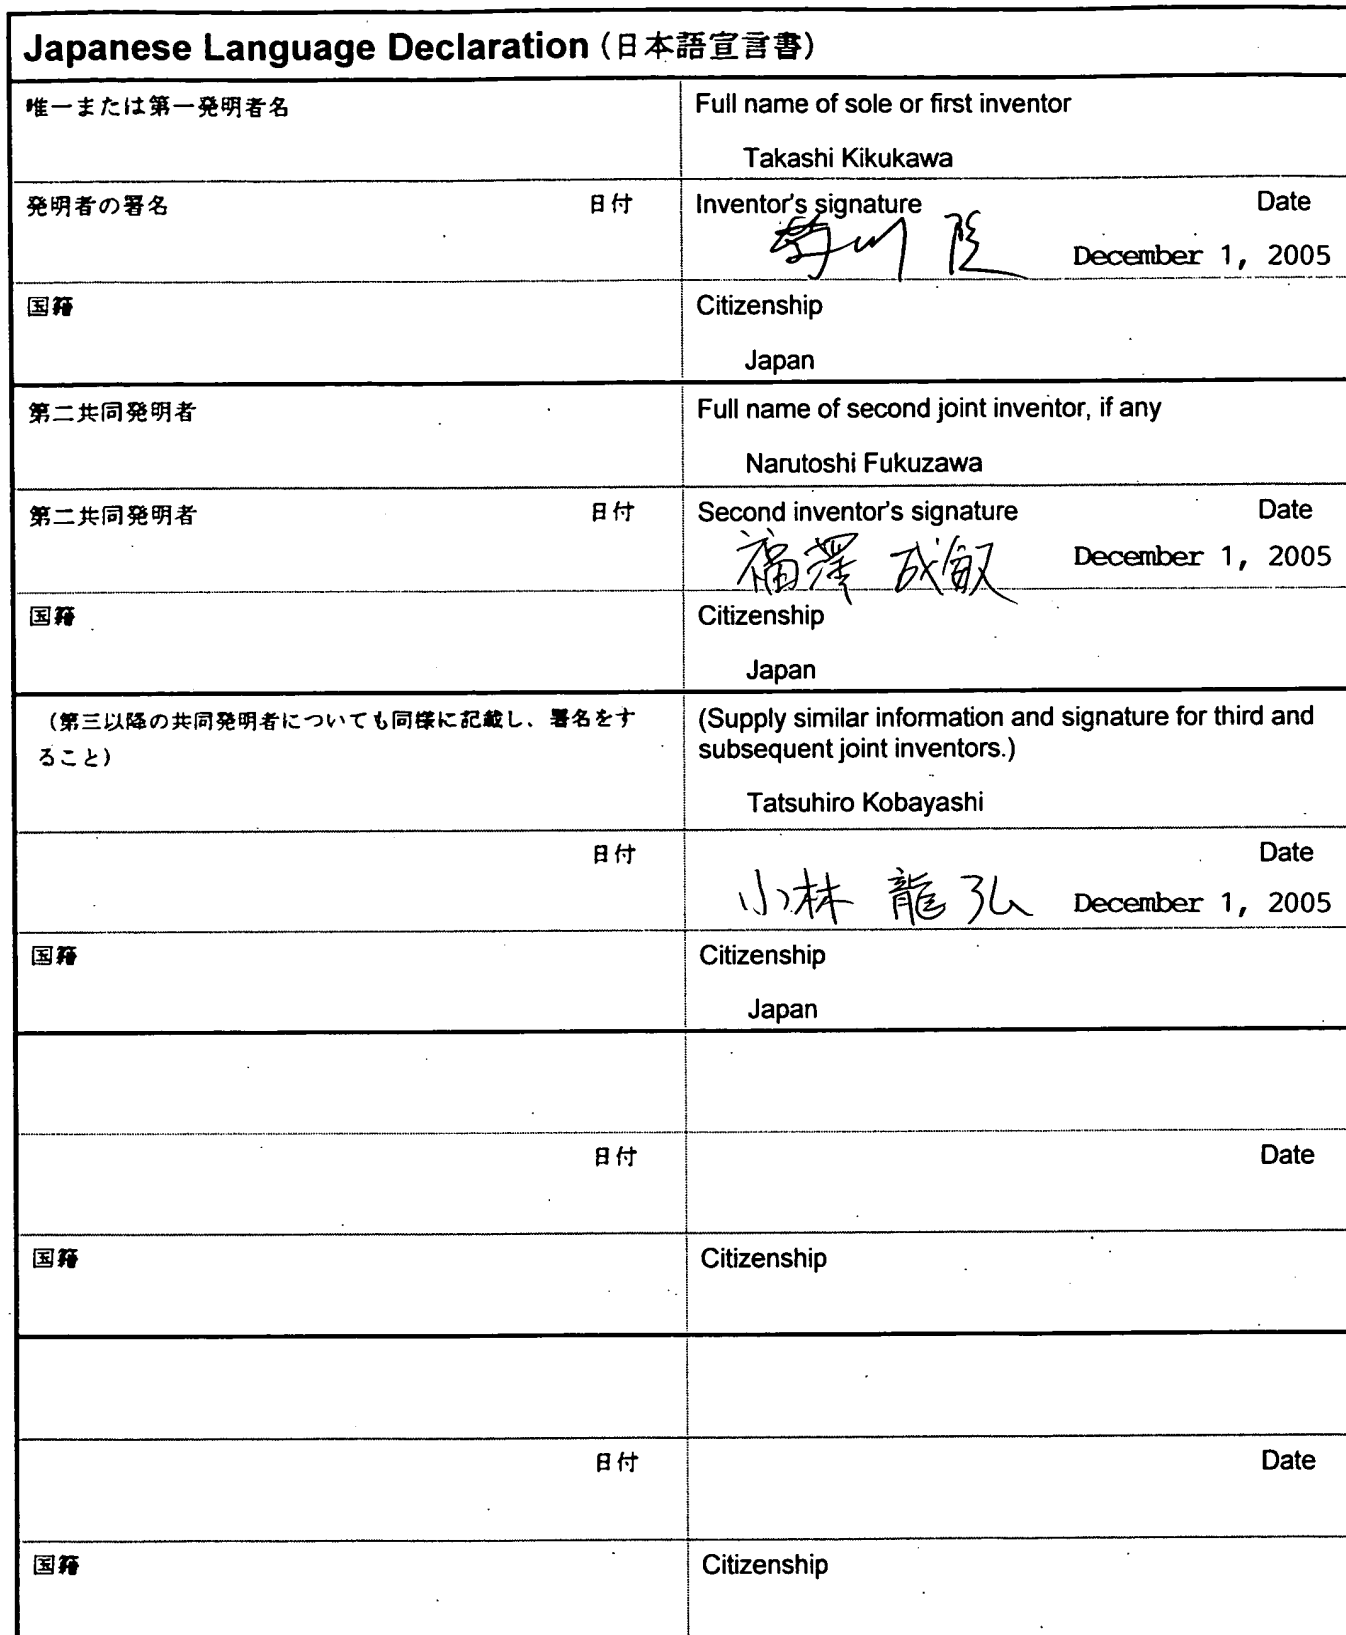 Japanese Language Declaration (日本語宣言書)
唯一または第一発明者名
Full name of sole or first inventor
Takashi Kikukawa
発明者の署名 日付
Inventor's signature Date
川 December 1, 2005
国籍
Citizenship
Japan
第二共同発明者
Full name of second joint inventor, if any
Narutoshi Fukuzawa
第二共同発明者 日付
Second inventor's signature Date
福澤 成敏 December 1, 2005
国籍
Citizenship
Japan
(第三以降の共同発明者についても同様に記載し、署名をす
ること)
(Supply similar information and signature for third and
subsequent joint inventors.)
Tatsuhiro Kobayashi
日付
Date
小林 龍弘 December 1, 2005
国籍
Citizenship
Japan
日付
Date
国籍
Citizenship
日付
Date
国籍
Citizenship